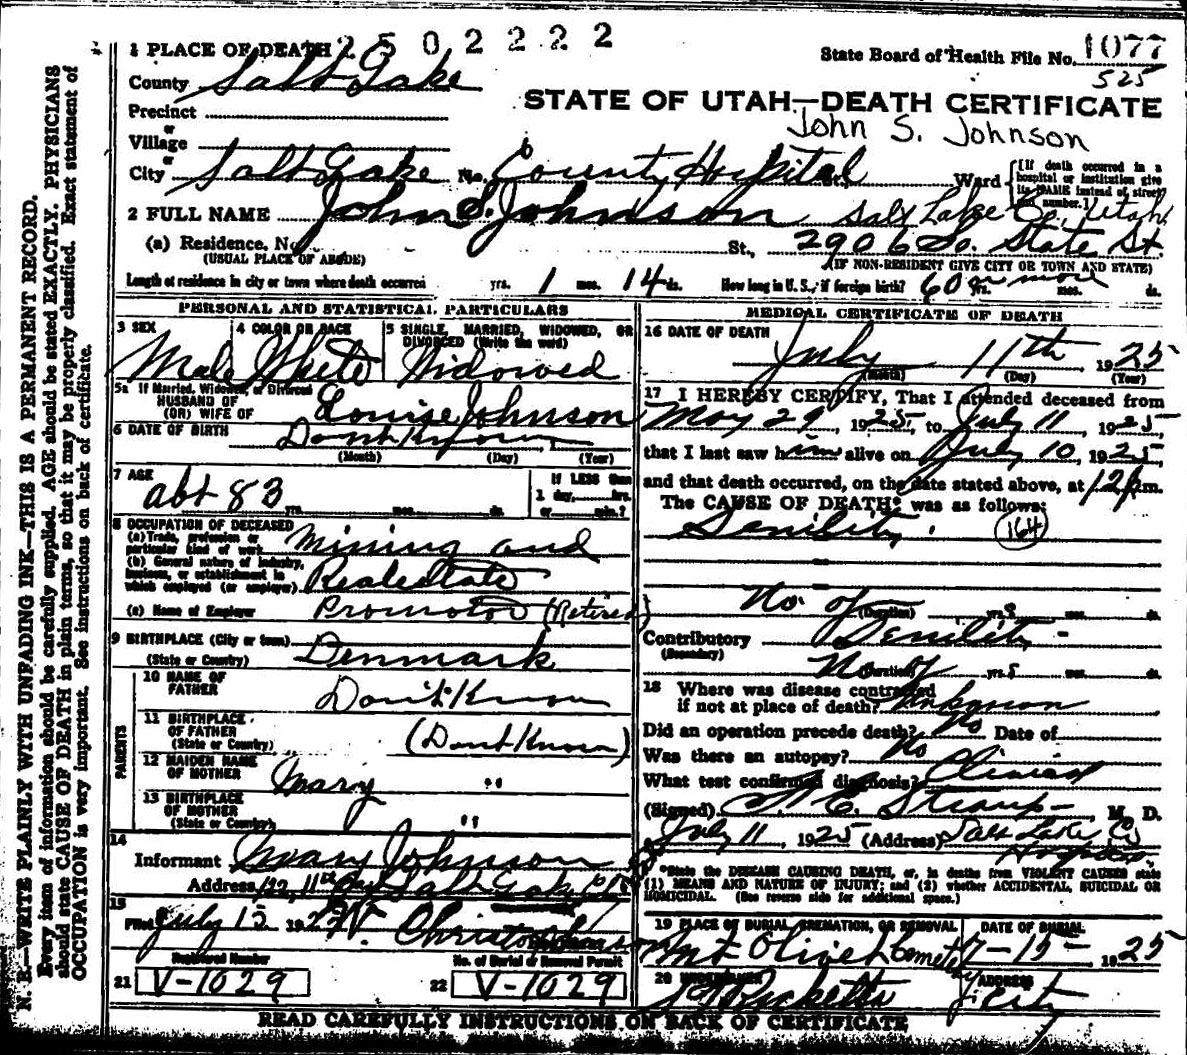 2502222
1 PLACE OF DEATH
State Board of Health File No. 1077
525
County Salt Lake
STATE OF UTAH—DEATH CERTIFICATE
Precinct
John S. Johnson
or
Village
or
City Salt Lake No. County Hospital St. Ward
[If death occurred in a hospital or institution give its NAME instead of street and number.]
2 FULL NAME John S. Johnson
Salt Lake Co., Utah
(a) Residence, No. St., 2906 So. State St.
(USUAL PLACE OF ABODE)
(IF NON-RESIDENT GIVE CITY OR TOWN AND STATE)
Length of residence in city or town where death occurred yrs. 1 mos. 14 ds. How long in U. S., if foreign birth? 60 or more yrs. mos. ds.
PERSONAL AND STATISTICAL PARTICULARS
3 SEX
Male
4 COLOR OR RACE
White
5 SINGLE, MARRIED, WIDOWED, OR
DIVORCED (Write the word)
Widowed
5a If Married, Widowed, or Divorced
HUSBAND OF
(OR) WIFE OF Louise Johnson
6 DATE OF BIRTH Dont Know
(Month) (Day) (Year)
7 AGE
abt 83 yrs. mos. ds.
If LESS than
1 day, hrs.
or min.?
8 OCCUPATION OF DECEASED
(a) Trade, profession or
particular kind of work Mining and
(b) General nature of industry,
business, or establishment in
which employed (or employer) Realestate
(c) Name of Employer Promotor (Retired)
9 BIRTHPLACE (City or town)
(State or Country) Denmark
PARENTS
10 NAME OF
FATHER Don't Know
11 BIRTHPLACE
OF FATHER
(State or Country) (Dont Know)
12 MAIDEN NAME
OF MOTHER Mary "
13 BIRTHPLACE
OF MOTHER
(State or Country) "
14
Informant Mary Johnson
Address Salt Lake
15
Filed July 15 192
Registered Number
21 V-1029
No. of Burial or Removal Permit
22 V-1029
MEDICAL CERTIFICATE OF DEATH
16 DATE OF DEATH
July 11th 1925
(Month) (Day) (Year)
17 I HEREBY CERTIFY, That I attended deceased from
May 29, 1925, to July 11, 1925,
that I last saw him alive on July 10, 1925,
and that death occurred, on the date stated above, at m.
The CAUSE OF DEATH* was as follows:
Senility. 164
No. of (Duration) yrs. mos. ds.
Contributory Senility -
(Secondary)
No. of (Duration) yrs. mos. ds.
18 Where was disease contracted
if not at place of death? Unknown
Did an operation precede death? No Date of
Was there an autopsy? No
What test confirmed diagnosis? Clinical
(Signed) M. D.
July 11, 1925 (Address) Salt Lake Co
Hospital
*State the DISEASE CAUSING DEATH, or, in deaths from VIOLENT CAUSES state
(1) MEANS AND NATURE OF INJURY; and (2) whether ACCIDENTAL, SUICIDAL OR
HOMICIDAL. (See reverse side for additional space.)
19 PLACE OF BURIAL, CREMATION, OR REMOVAL
Mt Olivet Cemetery
DATE OF BURIAL
7-15- 1925
20 UNDERTAKER
Ricketts
ADDRESS
City
READ CAREFULLY INSTRUCTIONS ON BACK OF CERTIFICATE
N. B.—WRITE PLAINLY WITH UNFADING INK—THIS IS A PERMANENT RECORD.
Every item of information should be carefully supplied. AGE should be stated EXACTLY. PHYSICIANS
should state CAUSE OF DEATH in plain terms, so that it may be properly classified. Exact statement of
OCCUPATION is very important. See instructions on back of certificate.